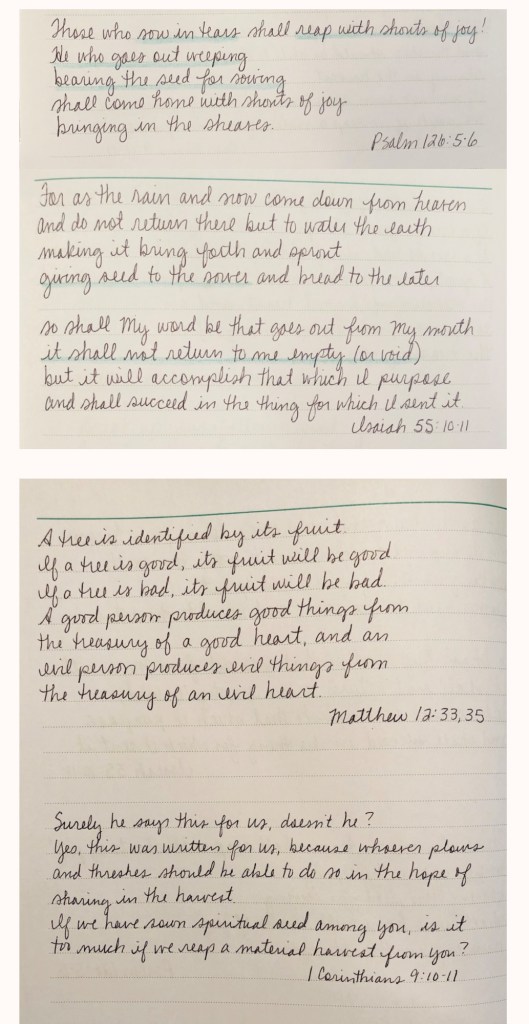 Those who sow in tears shall reap with shouts of joy!
He who goes out weeping
bearing the seed for sowing
shall come home with shouts of joy
bringing in the sheaves.
Psalm 126:5-6
For as the rain and snow come down from heaven
and do not return there but to water the earth
making it bring forth and sprout
giving seed to the sower and bread to the eater
so shall My word be that goes out from My mouth
it shall not return to me empty (or void)
but it will accomplish that which I purpose
and shall succeed in the thing for which I sent it.
Isaiah 55:10-11
A tree is identified by its fruit.
If a tree is good, its fruit will be good.
If a tree is bad, its fruit will be bad.
A good person produces good things from
the treasury of a good heart, and an
evil person produces evil things from
the treasury of an evil heart.
Matthew 12:33,35
Surely he says this for us, doesn't he?
Yes, this was written for us, because whoever plows
and threshes should be able to do so in the hope of
sharing in the harvest.
If we have sown spiritual seed among you, is it
too much if we reap a material harvest from you?
1 Corinthians 9:10-11